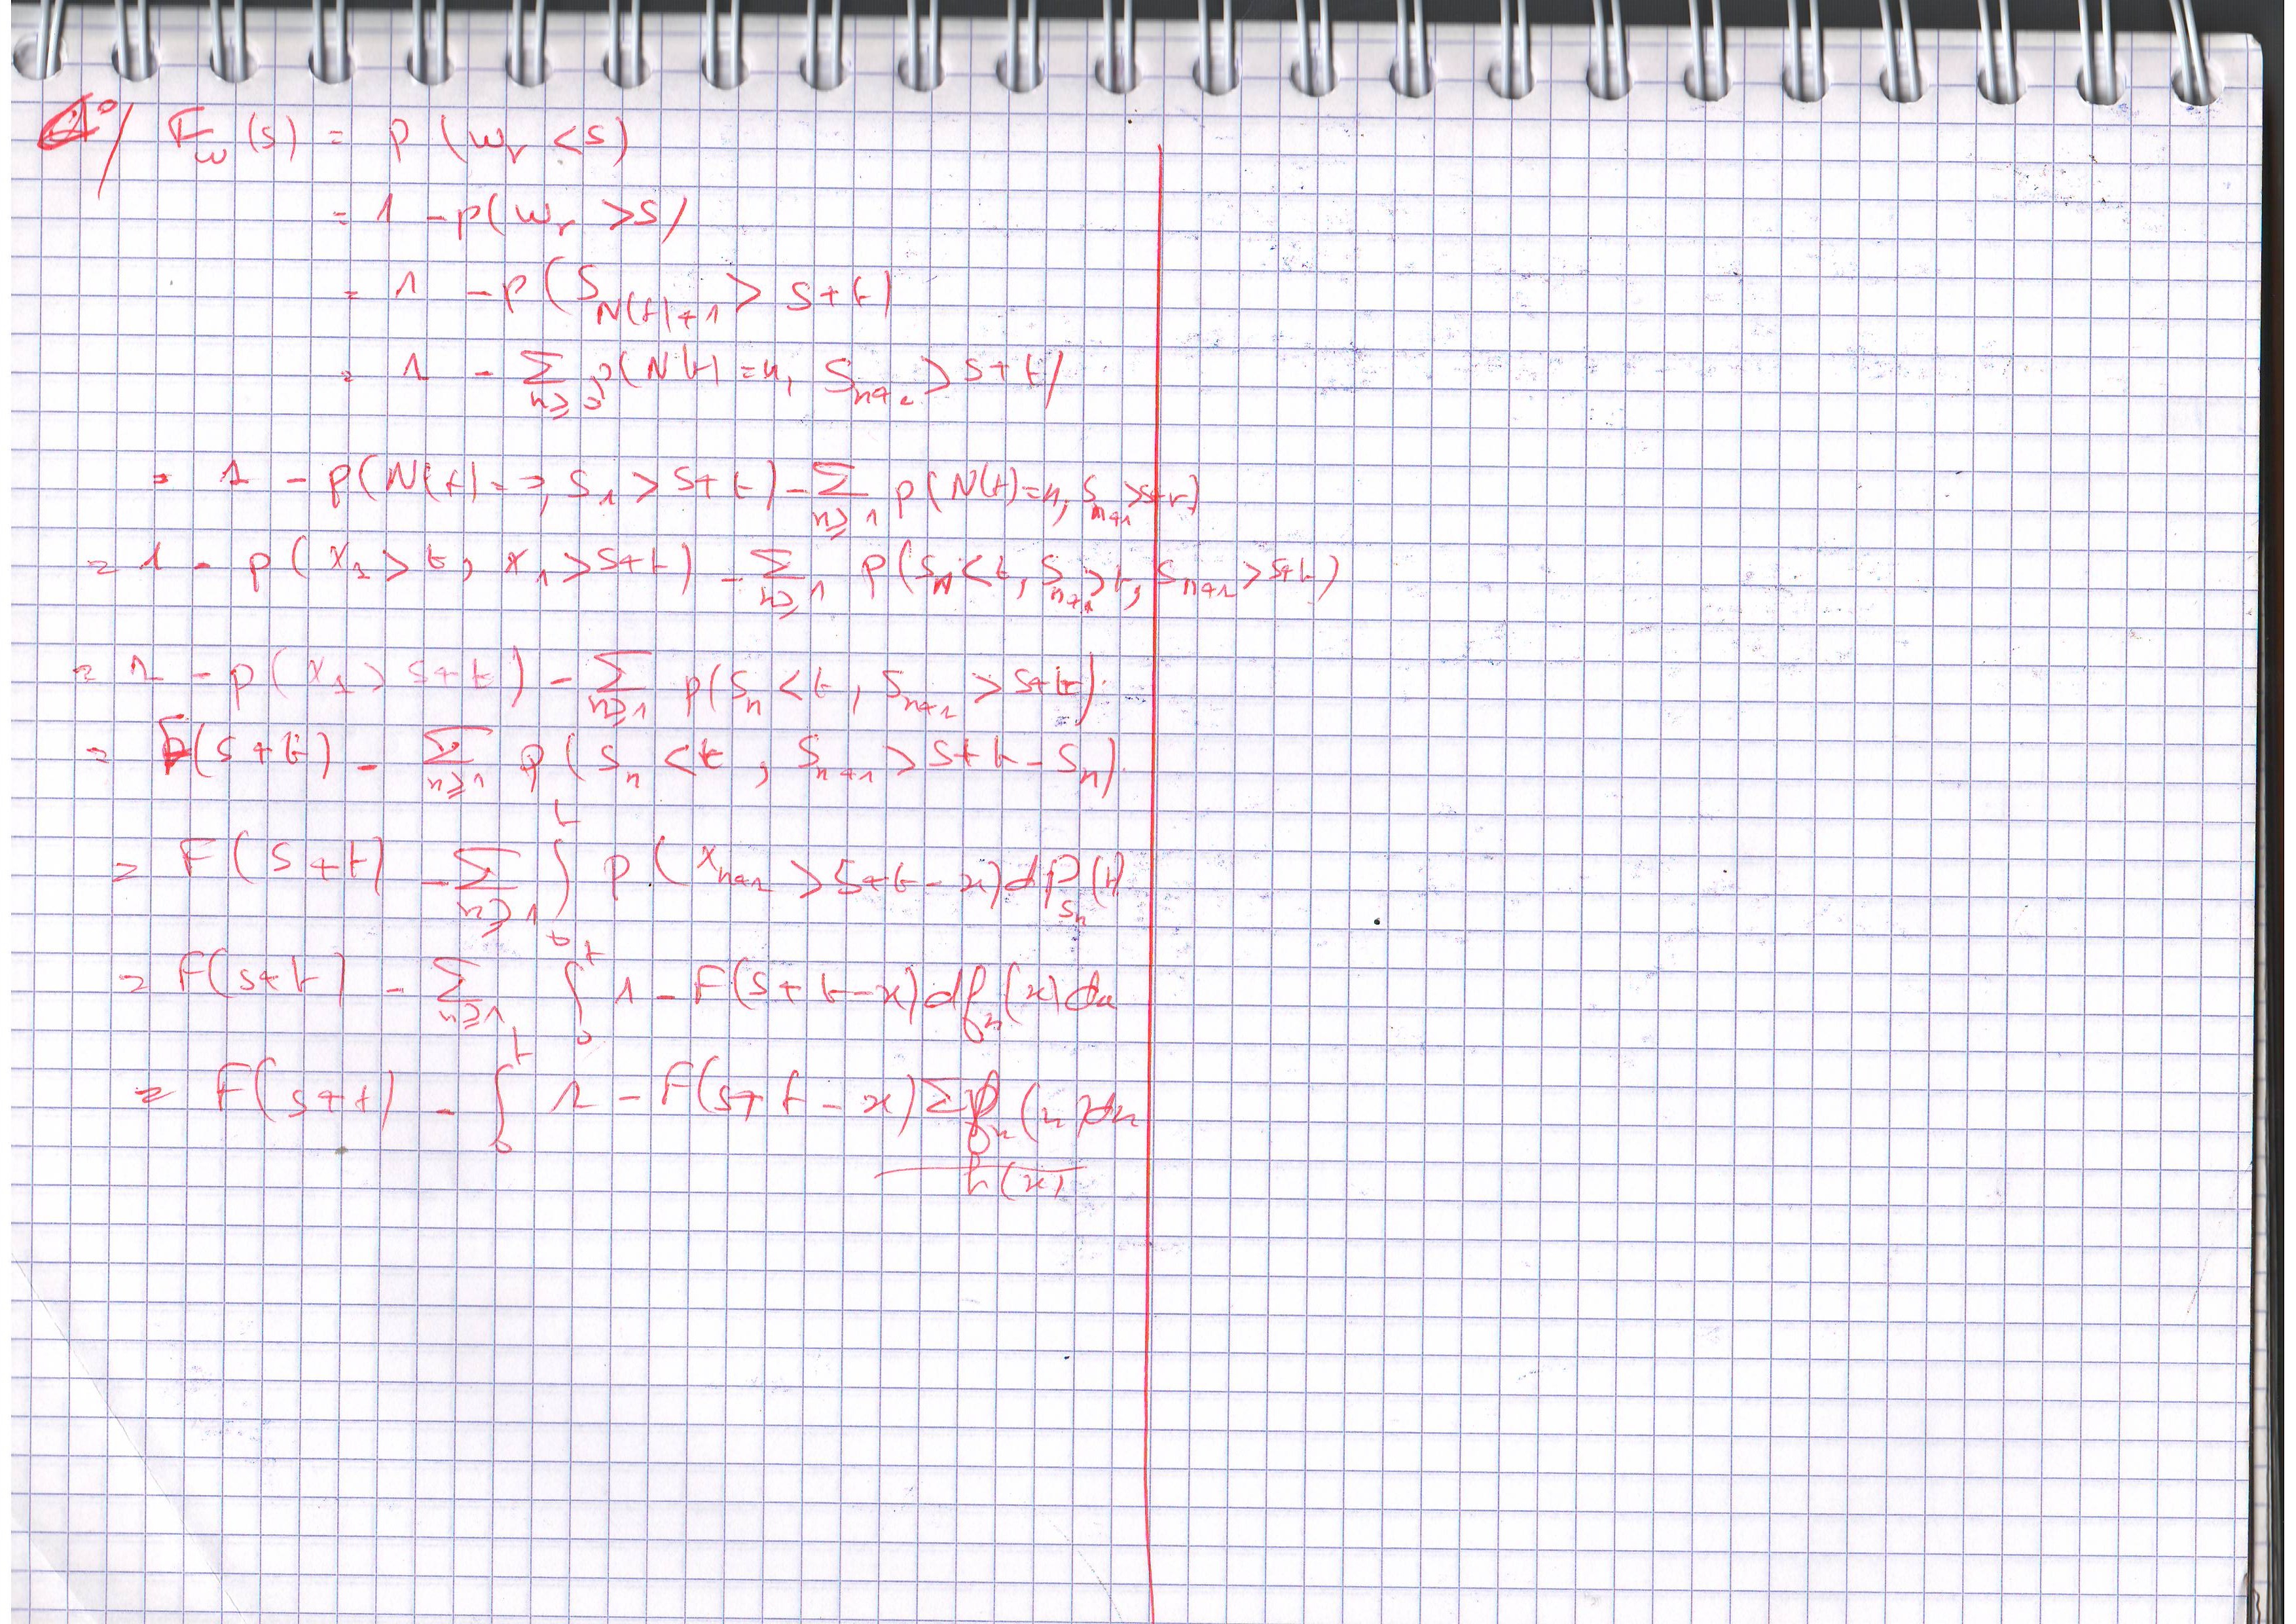 1°/ F_w(s) = P(w_r < s)
= 1 - p(w_r > s)
= 1 - p(S_{N(t)+1} > s+t)
= 1 - Σ_{n≥0} p(N(t) = n, S_{n+1} > s+t)
= 1 - p(N(t) = 0, S_1 > s+t) - Σ_{n≥1} p(N(t) = n, S_{n+1} > s+t)
= 1 - p(X_1 > t, X_1 > s+t) - Σ_{n≥1} p(S_n < t, S_{n+1} > t, S_{n+1} > s+t)
= 1 - p(X_1 > s+t) - Σ_{n≥1} p(S_n < t, S_{n+1} > s+t)
= F(s+t) - Σ_{n≥1} p(S_n < t, S_{n+1} > s+t - S_n)
= F(s+t) - Σ_{n≥1} ∫_0^t p(X_{n+1} > s+t-x) dP_{S_n}(t)
= F(s+t) - Σ_{n≥1} ∫_0^t 1 - F(s+t-x) df_n(x) dx
= F(s+t) - ∫_0^t 1 - F(s+t-x) Σ f_n(x) dx
h(x)